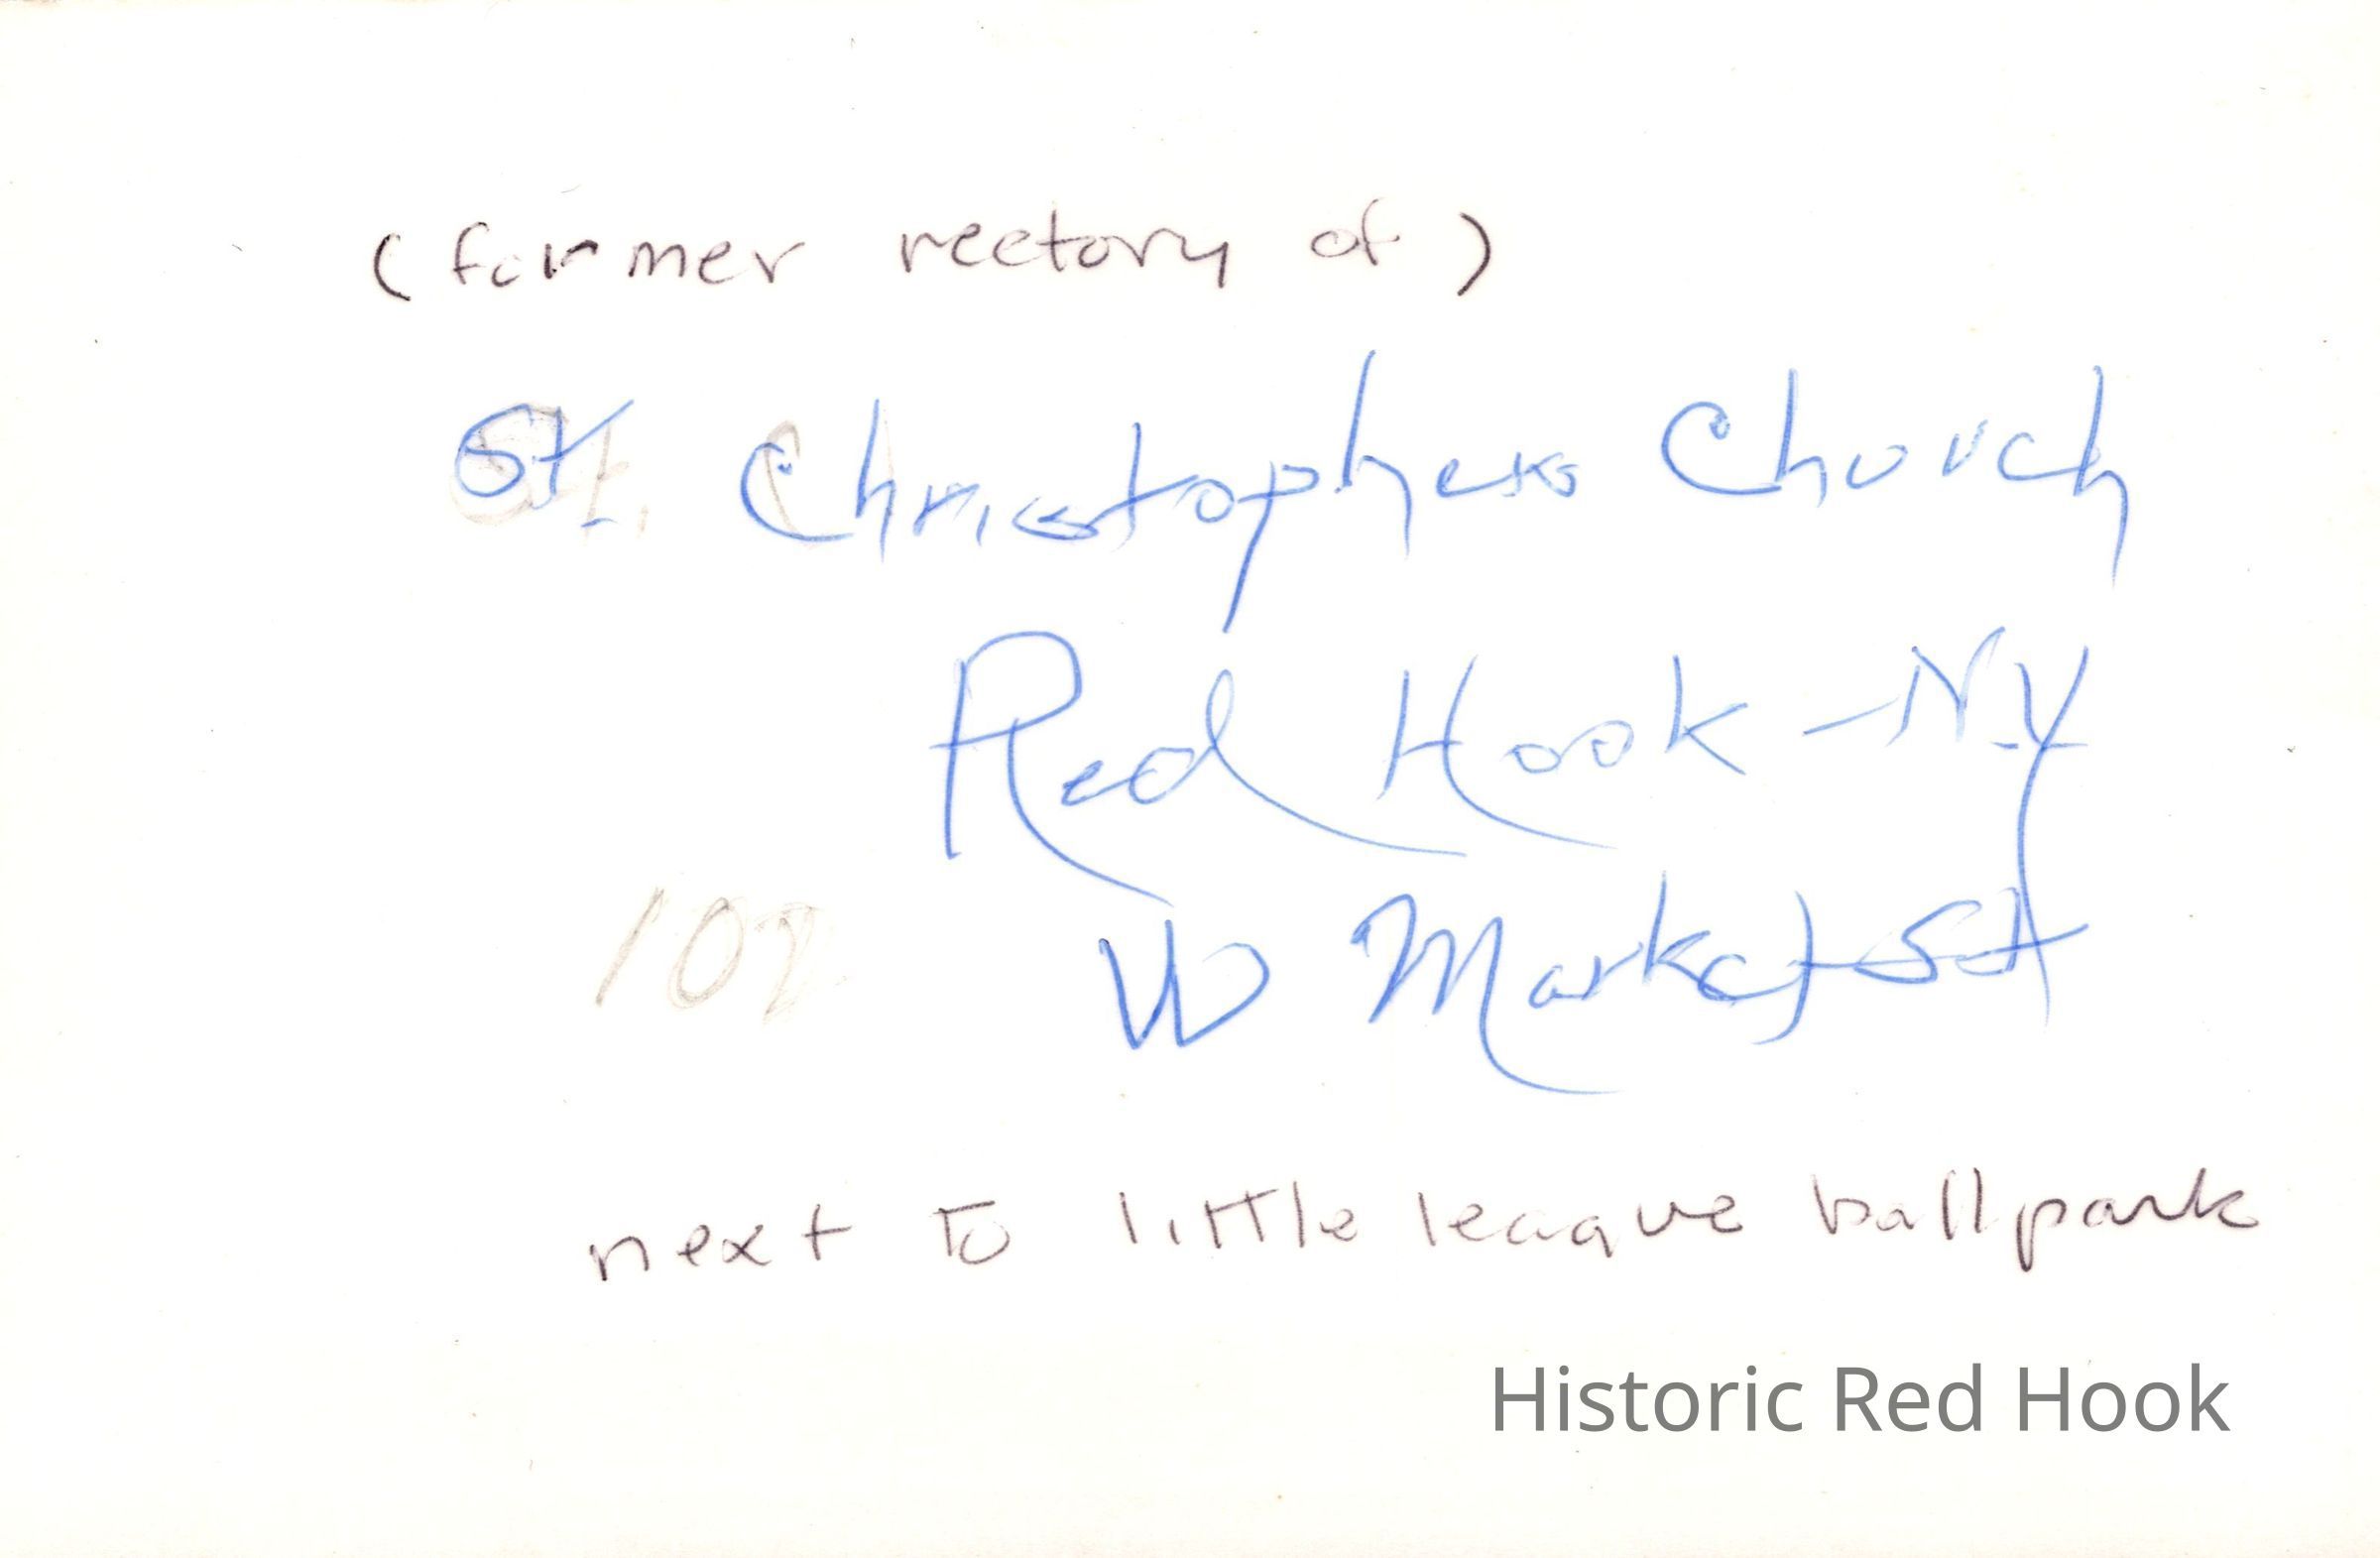 (former rectory of)
St. Christophers Church
Red Hook - N.Y
W Market St
next to little league ballpark
Historic Red Hook